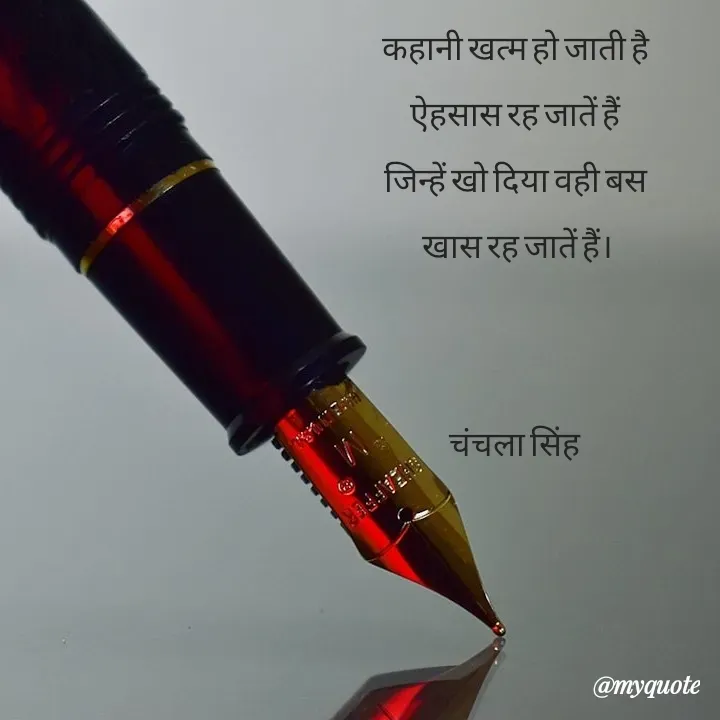 कहानी खत्म हो जाती है
ऐहसास रह जातें हैं
जिन्हें खो दिया वही बस
खास रह जातें हैं।
चंचला सिंह
M
SHEAFFER
®
@myquote